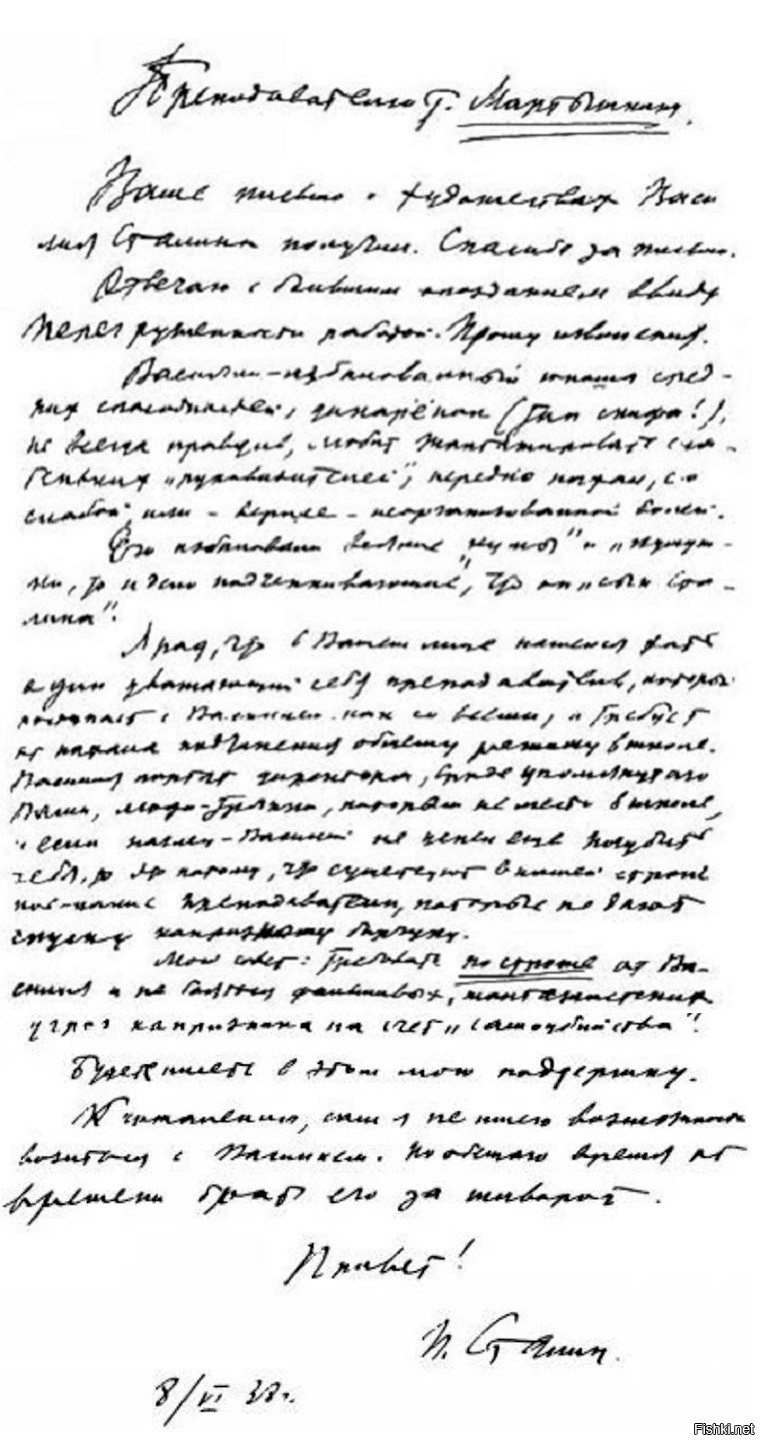 Преподавателю т. Мартышину.
Ваше письмо о художествах Васи
лия Сталина получил. Спасибо за письмо.
Отвечаю с большим опозданием ввиду
перегруженности работой. Прошу извинения.
Василий – избалованный юноша сред-
них способностей, дикарёнок (тип скифа!),
не всегда правдив, любит шантажировать сла-
беньких „руководителей", нередко нахал, со
слабой или – вернее – неорганизованной волей.
Его избаловали всякие „кумы" и „кумуш-
ки, то и дело подчеркивающие", что он „сын Ста-
лина".
Я рад, что в Вашем лице нашелся хоть
один уважающий себя преподаватель, который
поступает с Василием как со всеми, и требует
от нахала подчинения общему режиму в школе.
Василия портят директора, вроде упомянутого
Вами, люди-тряпки, которым не место в школе,
и если наглец-Василий не успел еще погубить
себя, то это потому, что существуют в нашей стране
кое-какие преподаватели, которые не дают
спуску капризному барчуку.
Мой совет: требовать построже от Ва-
силия и не бояться фальшивых, шантажистских
угроз капризника на счет „самоубийства".
Будете иметь в этом мою поддержку.
К сожалению, сам я не имею возможности
возиться с Василием. Но обещаю время от
времени брать его за шиворот.
Привет!
И. Сталин.
8/VI 38 г.
Fishki.net